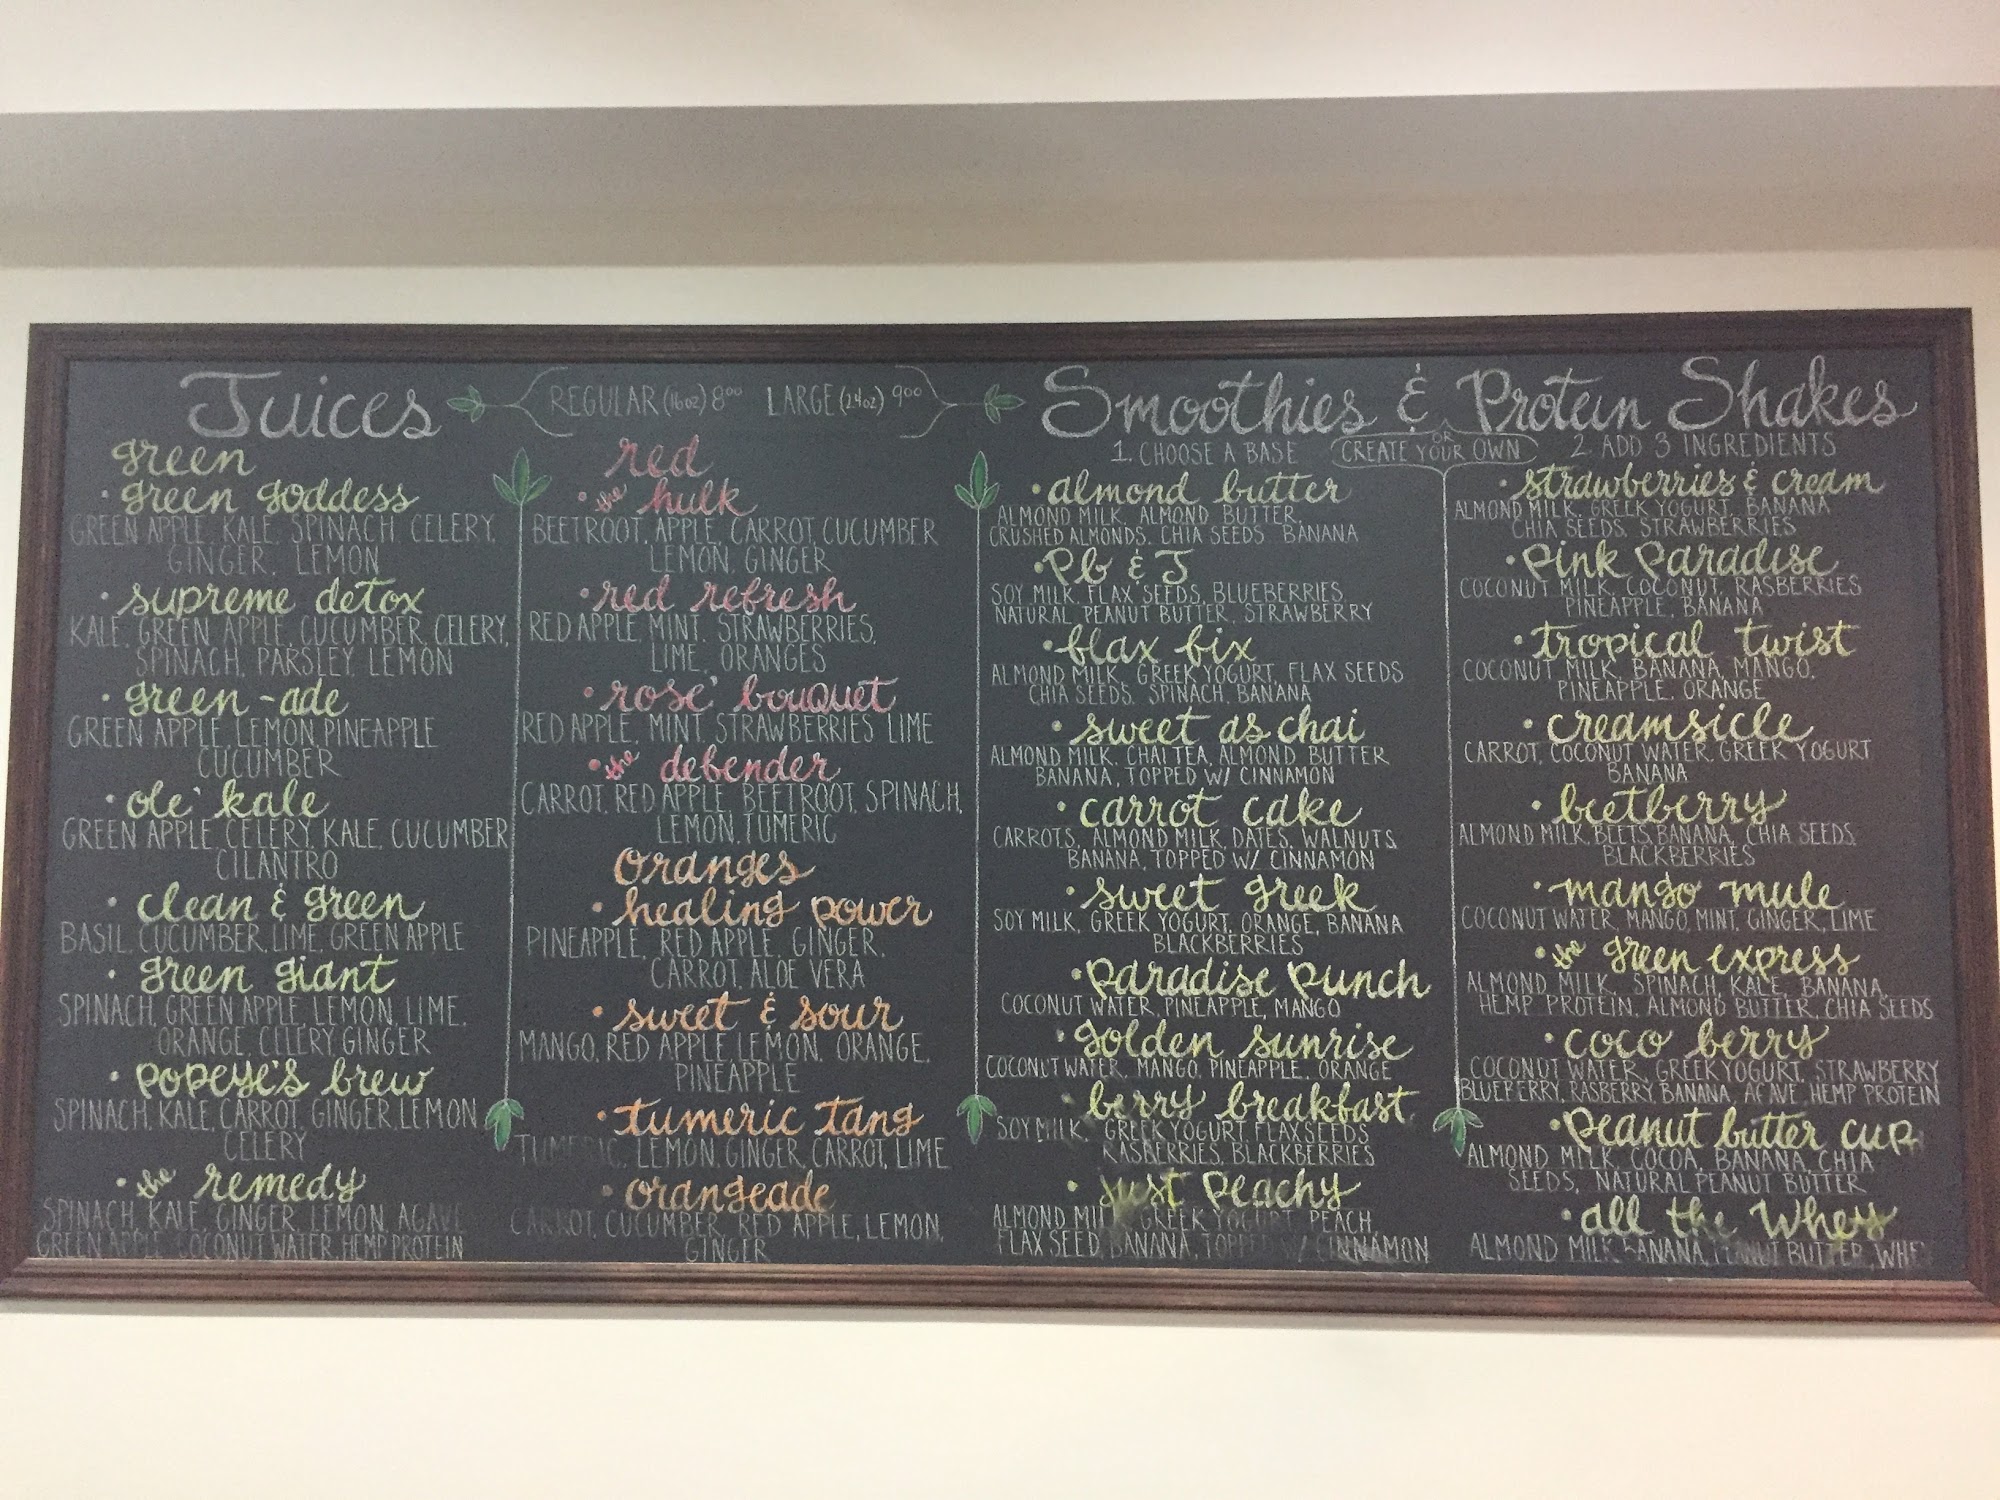 Juices
REGULAR (16 oz) 8⁰⁰ LARGE (24oz) 9⁰⁰
green
• green goddess
GREEN APPLE, KALE, SPINACH, CELERY,
GINGER, LEMON
• supreme detox
KALE, GREEN APPLE, CUCUMBER, CELERY,
SPINACH, PARSLEY, LEMON
• green-ade
GREEN APPLE, LEMON, PINEAPPLE
CUCUMBER
• ole' kale
GREEN APPLE, CELERY, KALE, CUCUMBER
CILANTRO
• clean & green
BASIL, CUCUMBER, LIME, GREEN APPLE
• green giant
SPINACH, GREEN APPLE, LEMON, LIME,
ORANGE, CELERY, GINGER
• popeye's brew
SPINACH, KALE, CARROT, GINGER, LEMON,
CELERY
• the remedy
SPINACH, KALE, GINGER, LEMON, AGAVE
GREEN APPLE, COCONUT WATER, HEMP PROTEIN
red
• the hulk
BEETROOT, APPLE, CARROT, CUCUMBER
LEMON, GINGER
• red refresh
RED APPLE, MINT, STRAWBERRIES,
LIME, ORANGES
• rose' bouquet
RED APPLE, MINT, STRAWBERRIES, LIME
• the defender
CARROT, RED APPLE, BEETROOT, SPINACH,
LEMON, TUMERIC
Oranges
• healing power
PINEAPPLE, RED APPLE, GINGER,
CARROT, ALOE VERA
• sweet & sour
MANGO, RED APPLE, LEMON, ORANGE,
PINEAPPLE
• tumeric tang
TUMERIC, LEMON, GINGER, CARROT, LIME
• orangeade
CARROT, CUCUMBER, RED APPLE, LEMON,
GINGER
Smoothies & Protein Shakes
1. CHOOSE A BASE
OR
CREATE YOUR OWN
2. ADD 3 INGREDIENTS
• almond butter
ALMOND MILK, ALMOND BUTTER,
CRUSHED ALMONDS, CHIA SEEDS, BANANA
• Pb & J
SOY MILK, FLAX SEEDS, BLUEBERRIES,
NATURAL PEANUT BUTTER, STRAWBERRY
• flax fix
ALMOND MILK, GREEK YOGURT, FLAX SEEDS
CHIA SEEDS, SPINACH, BANANA
• sweet as chai
ALMOND MILK, CHAI TEA, ALMOND BUTTER
BANANA, TOPPED W/ CINNAMON
• carrot cake
CARROTS, ALMOND MILK, DATES, WALNUTS,
BANANA, TOPPED W/ CINNAMON
• sweet greek
SOY MILK, GREEK YOGURT, ORANGE, BANANA
BLACKBERRIES
• paradise punch
COCONUT WATER, PINEAPPLE, MANGO
• golden sunrise
COCONUT WATER, MANGO, PINEAPPLE, ORANGE
• berry breakfast
SOY MILK, GREEK YOGURT, FLAX SEEDS
RASBERRIES, BLACKBERRIES
• just peachy
ALMOND MILK, GREEK YOGURT, PEACH,
FLAX SEED, BANANA, TOPPED W/ CINNAMON
• strawberries & cream
ALMOND MILK, GREEK YOGURT, BANANA
CHIA SEEDS, STRAWBERRIES
• pink paradise
COCONUT MILK, COCONUT, RASBERRIES
PINEAPPLE, BANANA
• tropical twist
COCONUT MILK, BANANA, MANGO,
PINEAPPLE, ORANGE
• creamsicle
CARROT, COCONUT WATER, GREEK YOGURT
BANANA
• beetberry
ALMOND MILK, BEETS, BANANA, CHIA SEEDS,
BLACKBERRIES
• mango mule
COCONUT WATER, MANGO, MINT, GINGER, LIME
• the green express
ALMOND MILK, SPINACH, KALE, BANANA,
HEMP PROTEIN, ALMOND BUTTER, CHIA SEEDS
• coco berry
COCONUT WATER, GREEK YOGURT, STRAWBERRY
BLUEBERRY, RASBERRY, BANANA, AGAVE, HEMP PROTEIN
• peanut butter cup
ALMOND MILK, COCOA, BANANA, CHIA
SEEDS, NATURAL PEANUT BUTTER
• all the whey
ALMOND MILK, BANANA, PEANUT BUTTER, WHEY